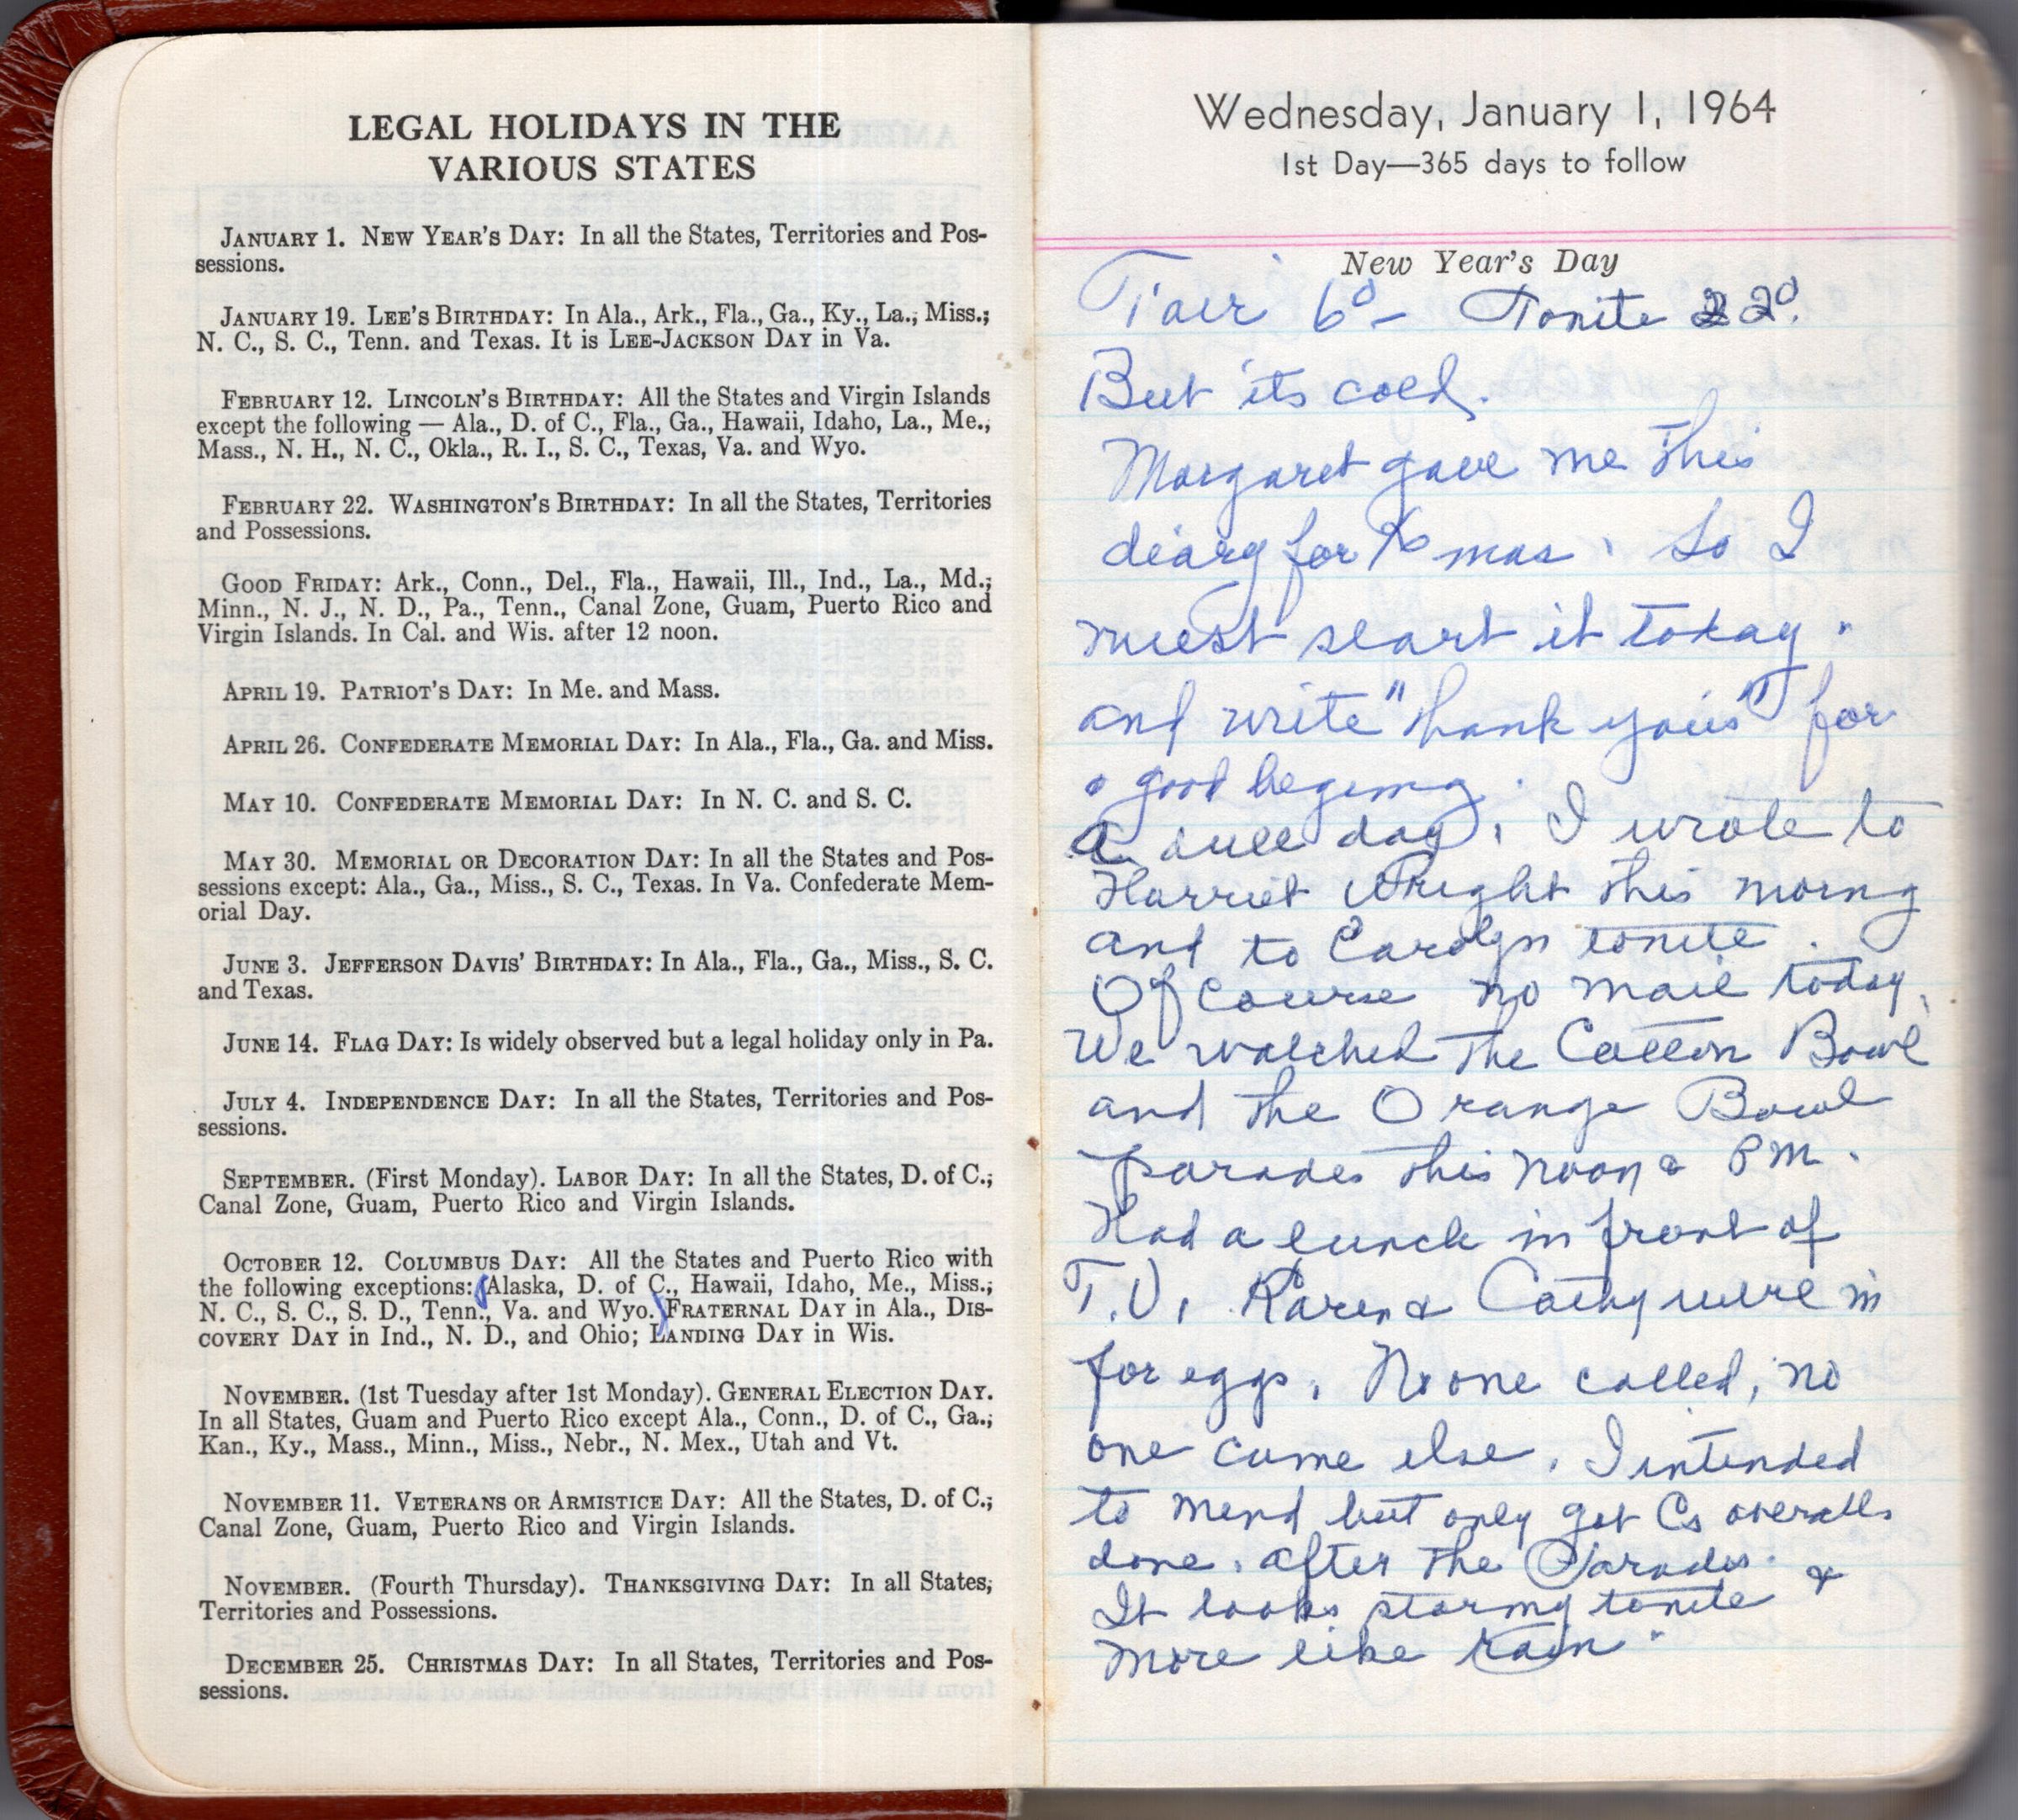 LEGAL HOLIDAYS IN THE
VARIOUS STATES
JANUARY 1. NEW YEAR'S DAY: In all the States, Territories and Pos-
sessions.
JANUARY 19. LEE'S BIRTHDAY: In Ala., Ark., Fla., Ga., Ky., La., Miss.,
N. C., S. C., Tenn. and Texas. It is LEE-JACKSON DAY in Va.
FEBRUARY 12. LINCOLN'S BIRTHDAY: All the States and Virgin Islands
except the following — Ala., D. of C., Fla., Ga., Hawaii, Idaho, La., Me.,
Mass., N. H., N. C., Okla., R. I., S. C., Texas, Va. and Wyo.
FEBRUARY 22. WASHINGTON'S BIRTHDAY: In all the States, Territories
and Possessions.
GOOD FRIDAY: Ark., Conn., Del., Fla., Hawaii, Ill., Ind., La., Md.,
Minn., N. J., N. D., Pa., Tenn., Canal Zone, Guam, Puerto Rico and
Virgin Islands. In Cal. and Wis. after 12 noon.
APRIL 19. PATRIOT'S DAY: In Me. and Mass.
APRIL 26. CONFEDERATE MEMORIAL DAY: In Ala., Fla., Ga. and Miss.
MAY 10. CONFEDERATE MEMORIAL DAY: In N. C. and S. C.
MAY 30. MEMORIAL OR DECORATION DAY: In all the States and Pos-
sessions except: Ala., Ga., Miss., S. C., Texas. In Va. Confederate Mem-
orial Day.
JUNE 3. JEFFERSON DAVIS' BIRTHDAY: In Ala., Fla., Ga., Miss., S. C.
and Texas.
JUNE 14. FLAG DAY: Is widely observed but a legal holiday only in Pa.
JULY 4. INDEPENDENCE DAY: In all the States, Territories and Pos-
sessions.
SEPTEMBER. (First Monday). LABOR DAY: In all the States, D. of C.,
Canal Zone, Guam, Puerto Rico and Virgin Islands.
OCTOBER 12. COLUMBUS DAY: All the States and Puerto Rico with
the following exceptions: (Alaska, D. of C., Hawaii, Idaho, Me., Miss.,
N. C., S. C., S. D., Tenn., Va. and Wyo.) FRATERNAL DAY in Ala., DIS-
COVERY DAY in Ind., N. D., and Ohio; LANDING DAY in Wis.
NOVEMBER. (1st Tuesday after 1st Monday). GENERAL ELECTION DAY.
In all States, Guam and Puerto Rico except Ala., Conn., D. of C., Ga.,
Kan., Ky., Mass., Minn., Miss., Nebr., N. Mex., Utah and Vt.
NOVEMBER 11. VETERANS OR ARMISTICE DAY: All the States, D. of C.,
Canal Zone, Guam, Puerto Rico and Virgin Islands.
NOVEMBER. (Fourth Thursday). THANKSGIVING DAY: In all States,
Territories and Possessions.
DECEMBER 25. CHRISTMAS DAY: In all States, Territories and Pos-
sessions.
Wednesday, January 1, 1964
1st Day—365 days to follow
New Year's Day
Fair 6° - Tonite 22°.
But its cold.
Margaret gave me this
diary for Xmas. So I
must start it today.
and write "thank yous" for
a good begining.
A dull day. I wrote to
Harriet Wright this morng
and to Carolyn tonite.
Of course no mail today.
We watched the Cotton Bowl
and the Orange Bowl
parades this noon & P.M.
Had a lunch in front of
T.V. Karen & Cathy were in
for eggs. No one called, no
one came else. I intended
to mend but only got Cs overalls
done. after the Parades.
It looks stormy tonite &
more like rain.